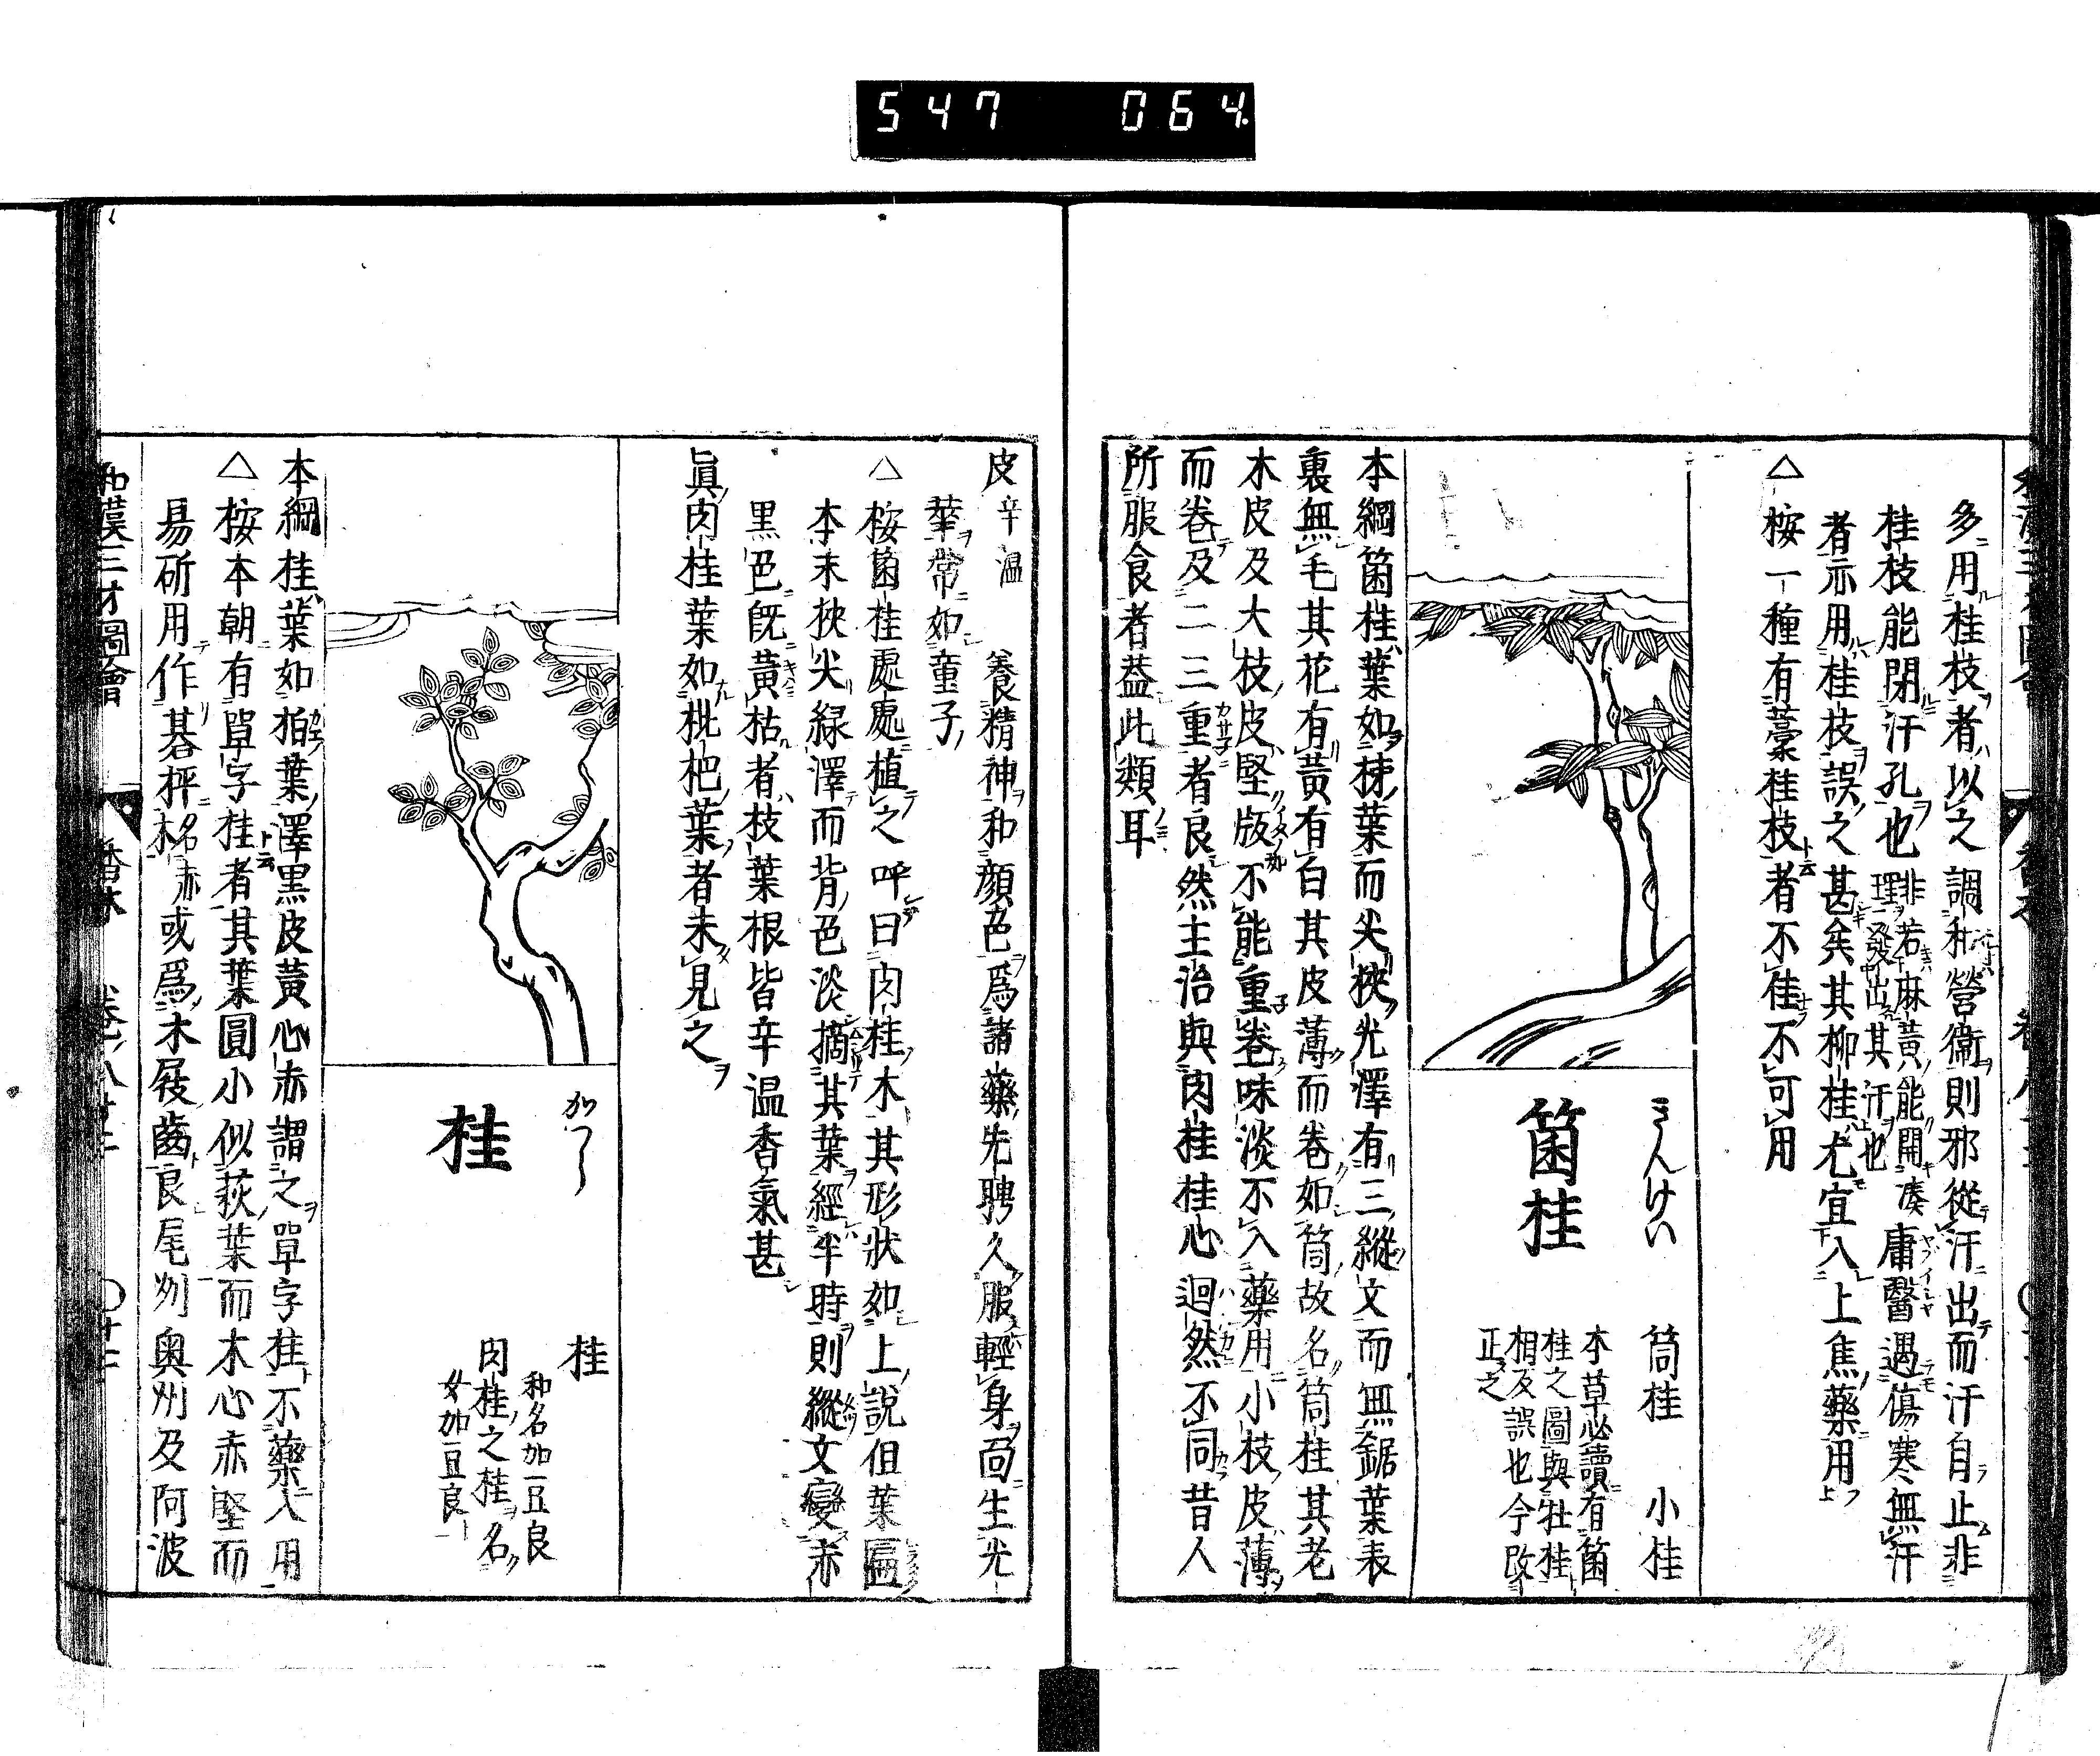 547 064
多用桂枝者以之調和營衞則邪從汗出而汗自止非
桂枝能閉汗孔也非若麻黃能開湊
理發出其汗也庸醫遇傷寒無汗
者示用桂枝誤之甚矣其柳桂尤宜入上焦藥用
△桉一種有藁桂枝者不佳不可用
きんけい
箘桂
筒桂 小桂
本草必讀有箘
桂之圖與牡桂
相反誤也今改
正之
本綱箘桂葉如柹葉而尖狹光澤有三縱文而無鋸葉表
裏無毛其花有黃有白其皮薄而卷如筒故名筒桂其老
木皮及大枝皮堅版不能重卷味淡不入藥用小枝皮薄
而卷及二三重者良然主治與肉桂桂心迥然不同昔人
所服食者葢此類耳
皮辛溫 養精神和顏色爲諸藥先聘久服輕身面生光
華常如童子
△桉箘桂處處植之呼曰肉桂木其形狀如上說但葉匾
本末狹尖緑澤而背色淡摘其葉經半時則縱文變赤
黒色既黃枯者枝葉根皆辛溫香氣甚
眞肉桂葉如枇杷葉者未見之
かつら
桂
桂
和名加豆良
肉桂之桂名
女加豆良
本綱桂葉如柏葉澤黒皮黃心赤謂之單字桂不藥入用
△桉本朝有單字桂者其葉圓小似萩葉而木心赤堅而
易斫用作碁枰名赤
木或爲木屐齒良尾州奥州及阿波
和漢三才圖會 香木 卷八十二 〇十二